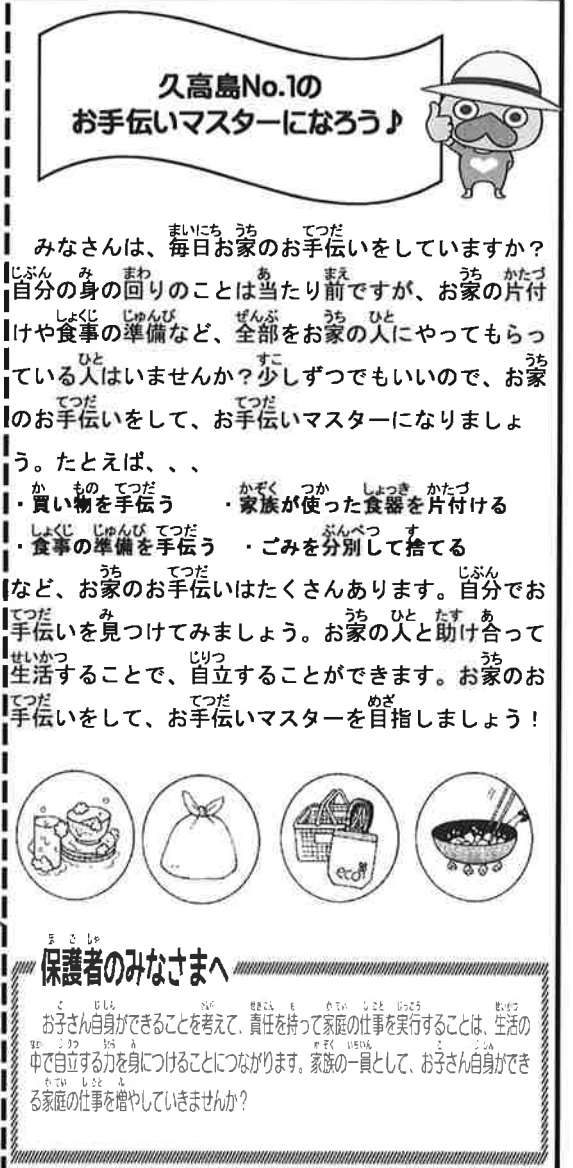 久高島No.1の
お手伝いマスターになろう♪
みなさんは、毎日お家のお手伝いをしていますか？
自分の身の回りのことは当たり前ですが、お家の片付
けや食事の準備など、全部をお家の人にやってもらっ
ている人はいませんか？少しずつでもいいので、お家
のお手伝いをして、お手伝いマスターになりましょ
う。たとえば、、、
・買い物を手伝う　・家族が使った食器を片付ける
・食事の準備を手伝う　・ごみを分別して捨てる
など、お家のお手伝いはたくさんあります。自分でお
手伝いを見つけてみましょう。お家の人と助け合って
生活することで、自立することができます。お家のお
手伝いをして、お手伝いマスターを目指しましょう！
eco
保護者のみなさまへ
お子さん自身ができることを考えて、責任を持って家庭の仕事を実行することは、生活の
中で自立する力を身につけることにつながります。家族の一員として、お子さん自身ができ
る家庭の仕事を増やしていきませんか？